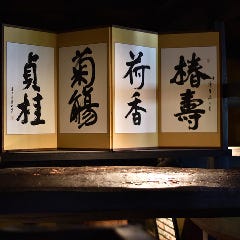 椿壽
荷香
菊觴
貞桂